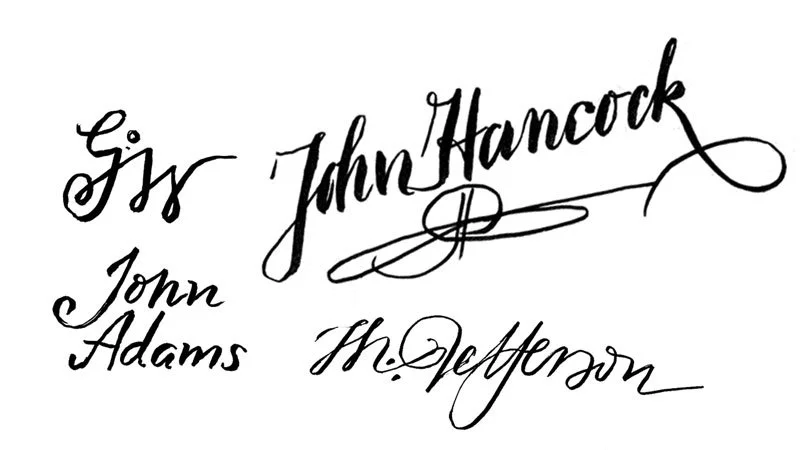 G.W
John Hancock
John
Adams
Th. Jefferson